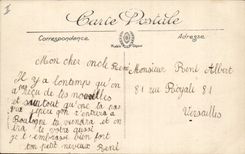 Carte Postale
Correspondance
Adresse
Mon cher oncle René
Il y a longtemps qu'on
a reçu de tes nouvelles
et surtout qu'on
Boulogne tu viendra et on
ira te votre aussi
je t'embrasse bien fort
ton petit neveux René
Monsieur René Albert
81 rue Royale 81
Versailles